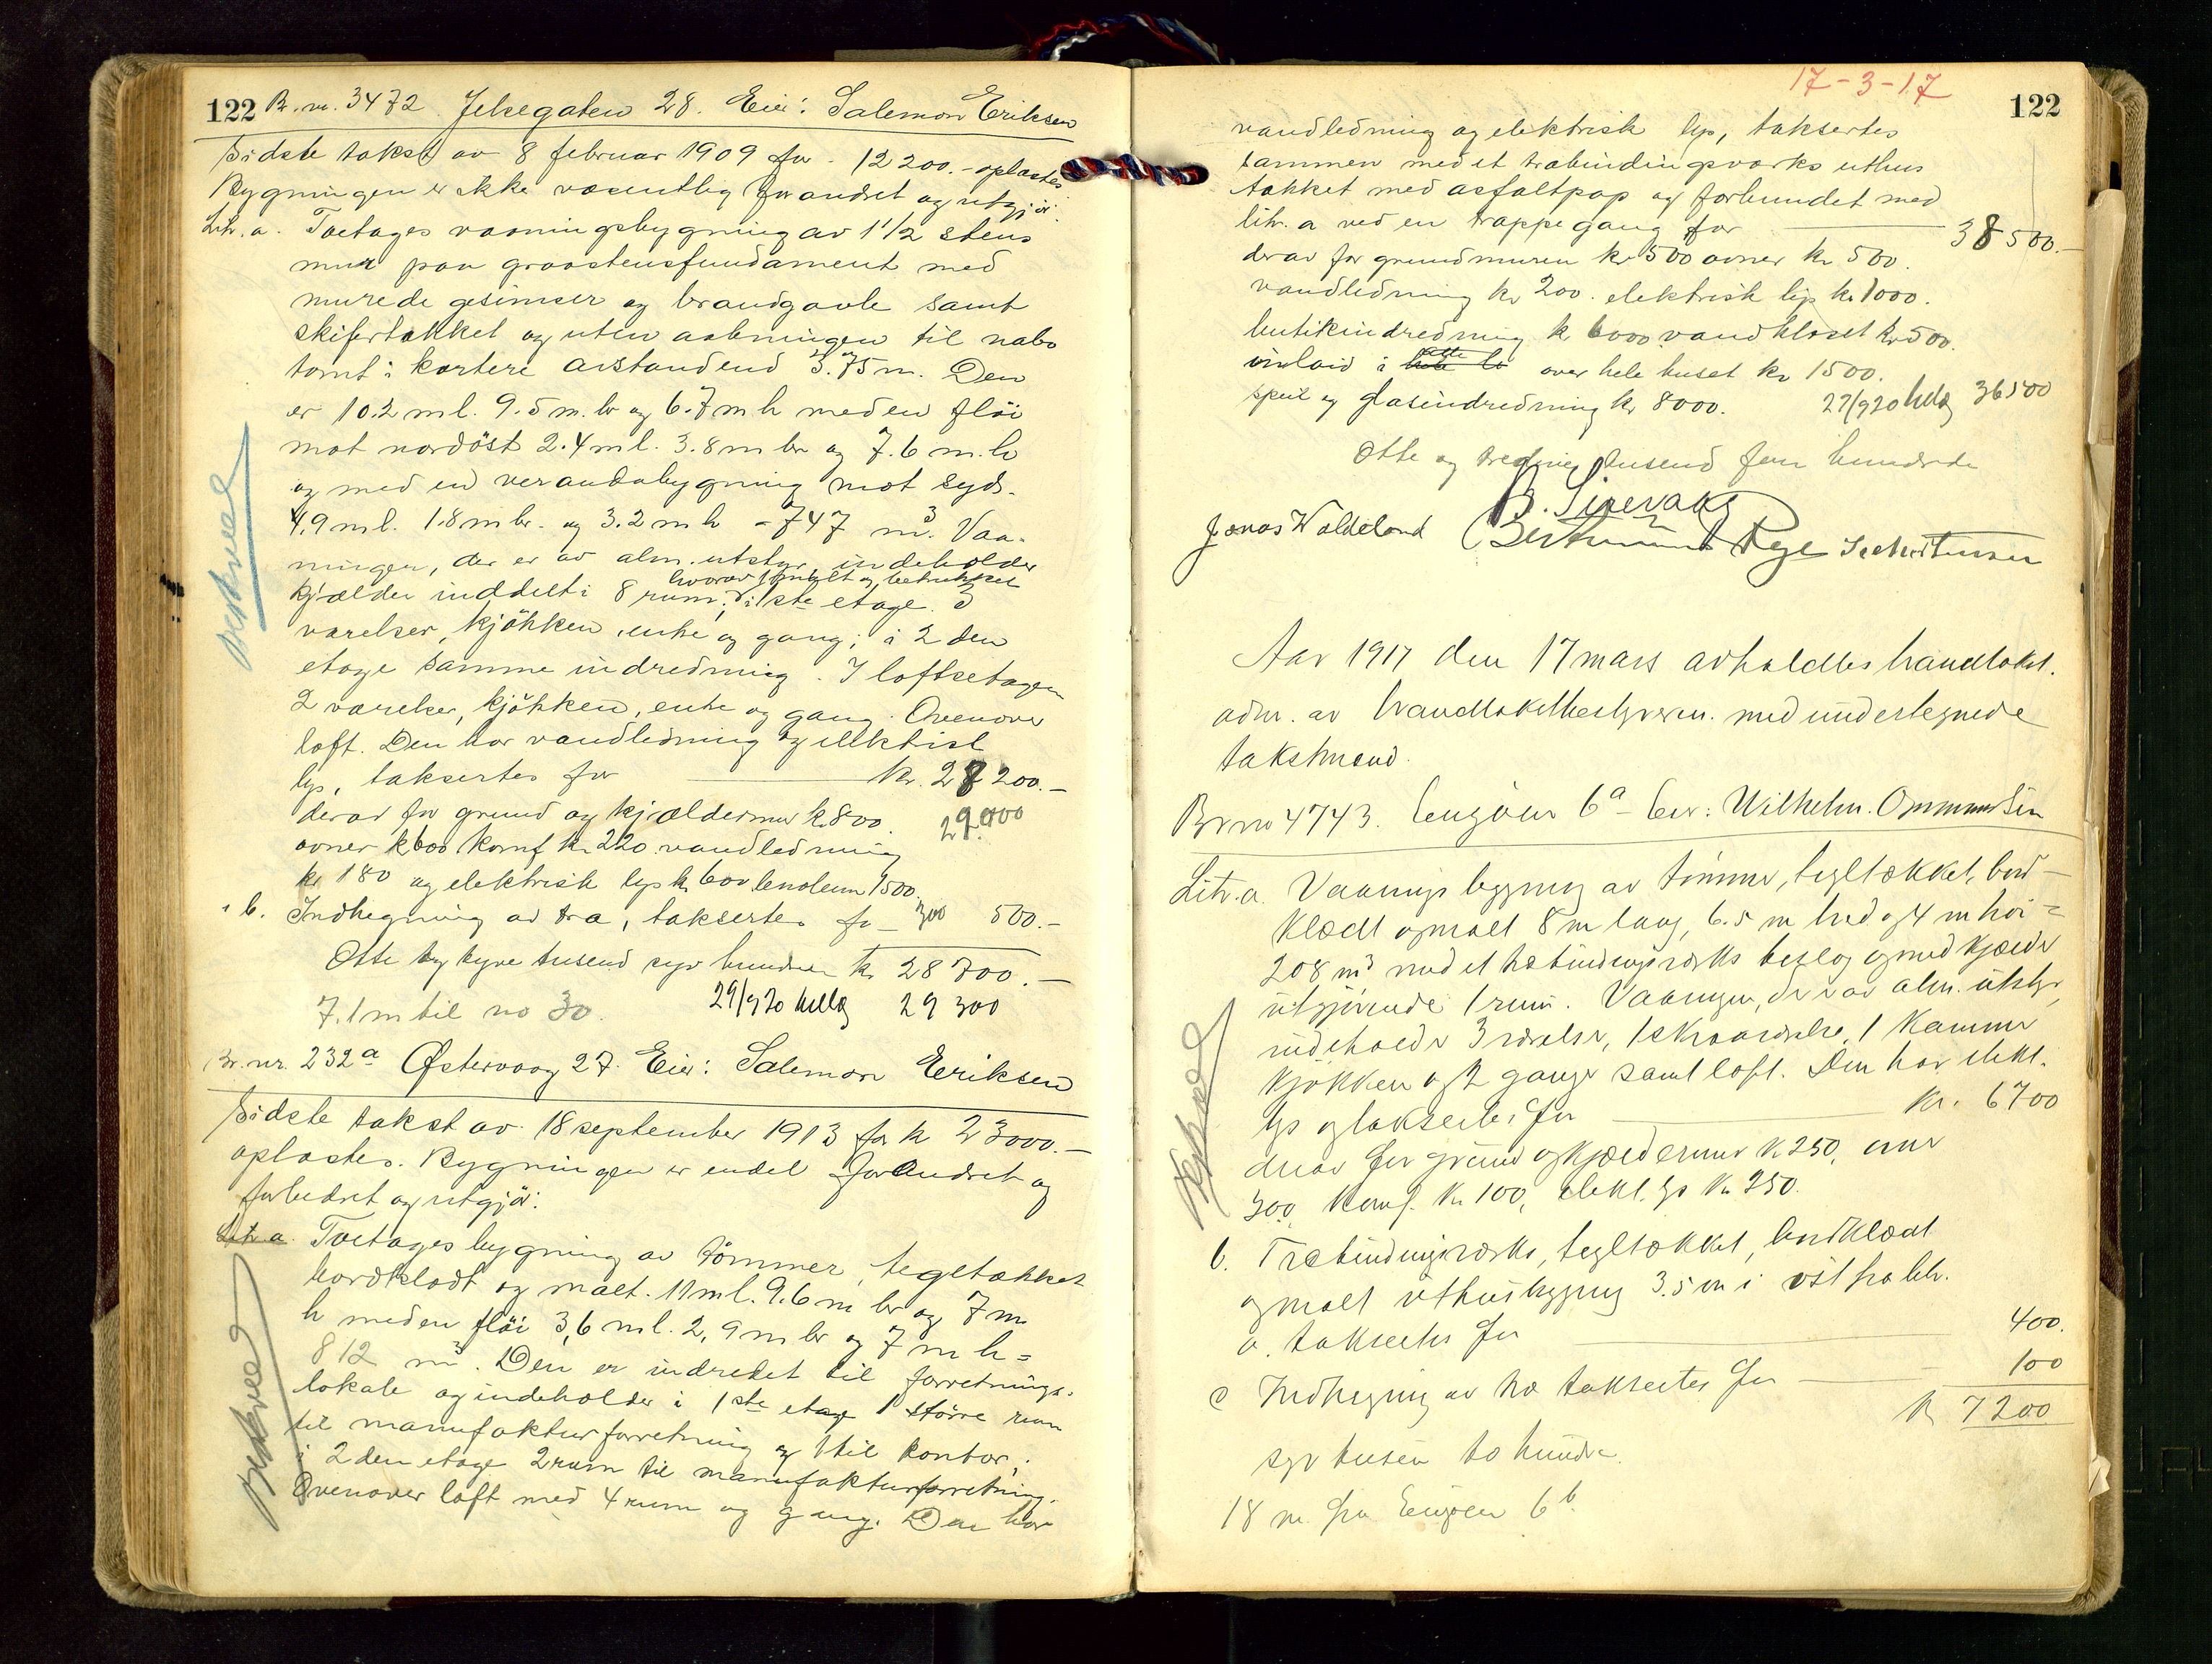 122 Br. nr. 3472 Jekegaten 28. Eier: Salemon Eriksen
Sidste takst av 8 februar 1909 for 12 200.- oplæstes
Bygningen er ikke væsentlig forandret og utgjør:
Litr. a. Toetages vaaningsbygning av 1 1/2 stens
mur paa graastensfundament med
murede gesimser og brandgavle samt
skifertækket og uten aabningen til nabo
tomt i kortere avstand end 3.75 m. Den
er 10.2 m l. 9.5 m. br og 6.7 m h med en fløi
mot nordøst 2.4 m l. 3.8 m br og 7.6 m. h
og med en verandabygning mot syd.
4.9 m l. 1.8 m br. og 3.2 m h - 747 m3. Vaa-
ningen, der er av alm. utstyr indeholder
hvorav 1 malt og betrukket
kjælder inddelt i 8 rum; i 1ste etage 3
værelser, kjøkken, entre og gang; i 2 den
etage samme indredning. I loftsetagen
2 værelser, kjøkken, entre og gang. Ovenover
loft. Den har vandledning og elektrisk
lys, taksertes for kr. 28 200.-
derav for grund og kjældermur kr 800. 29.000
ovner kr 600 komf kr 220 vandledning
kr 180 og elektrisk lys kr 600 lenoleum 1500.
" b. Indhegning av træ, taksertes for 300 500.-
Otte og tyve tusend syv hundrede kr 28 700.-
7.1 m til no 30. 29/9 20 30 29 300
Br. nr. 232a Østervaag 27. Eier: Salemon Eriksen
Sidste takst av 18 september 1913 for kr 23000.-
oplæstes. Bygningen er endel forandret og
forbedret og utgjør:
Litr. a. Toetages bygning av tømmer, tegltækket
bordklædt og malt. 11 m l. 9.6 m br og 7 m
h med en fløi 3,6 m l. 2,9 m br og 7 m h =
812 m3. Den er indredet til forretnings-
lokale og indeholder i 1ste etage 1 større rum
til manufakturforretning og 1 til kontor;
i 2 den etage 2 rum til manufakturforretning.
Ovenover loft med 4 rum og gang. Den har
17-3-17
122
vandledning og elektrisk lys, taksertes
sammen med et træbindingsværks uthus
tækket med asfaltpap og forbundet med
litr. a ved en trappegang for 38 500.-
derav for grundmuren kr 500 ovner kr 500.
vandledning kr 200. elektrisk lys kr 1000.
butikindredning kr 6000 vandkloset kr 500.
inlaid i over hele huset kr 1500.
speil og glasindredning kr 8000. 36500
Otte og tredive tusend fem hundrede
B. Sirevaag
Jonas Waldeland
Aar 1917 den 17 mars avholdtes brandtakst.
adm. av brandtakstbestyreren med undertegnede
takstmænd.
Br no 4743. Engøen 6a - Eier: Wilhelm Ommundsen
Litr. a. Vaaningsbygning av tømmer, tegltækket, bord-
klædt og malt 8 m lang, 6.5 m bred og 4 m høi =
208 m3 med et træbindingsværks beslag og med kjælder
utgjørende 1 rum. Vaaningen, der er av alm. utstyr,
indeholder 3 værelser, 1 skraaværelse, 1 kammer
kjøkken og 2 gange samt loft. Den har elekt.
lys og taksertes for kr. 6700
derav for grund og kjældermur kr 250, ovner
300, komf. kr 100, elekt. lys kr 250.
b. Træbindingsværks, tegltækket, bordklædt
og malt uthusbygning 3.5 m i øst fra litr.
a. taksertes for 400.
c Indhegning av træ taksertes for 100
kr 7200
syv tusen to hundre
18 m. fra Engøen 6b.